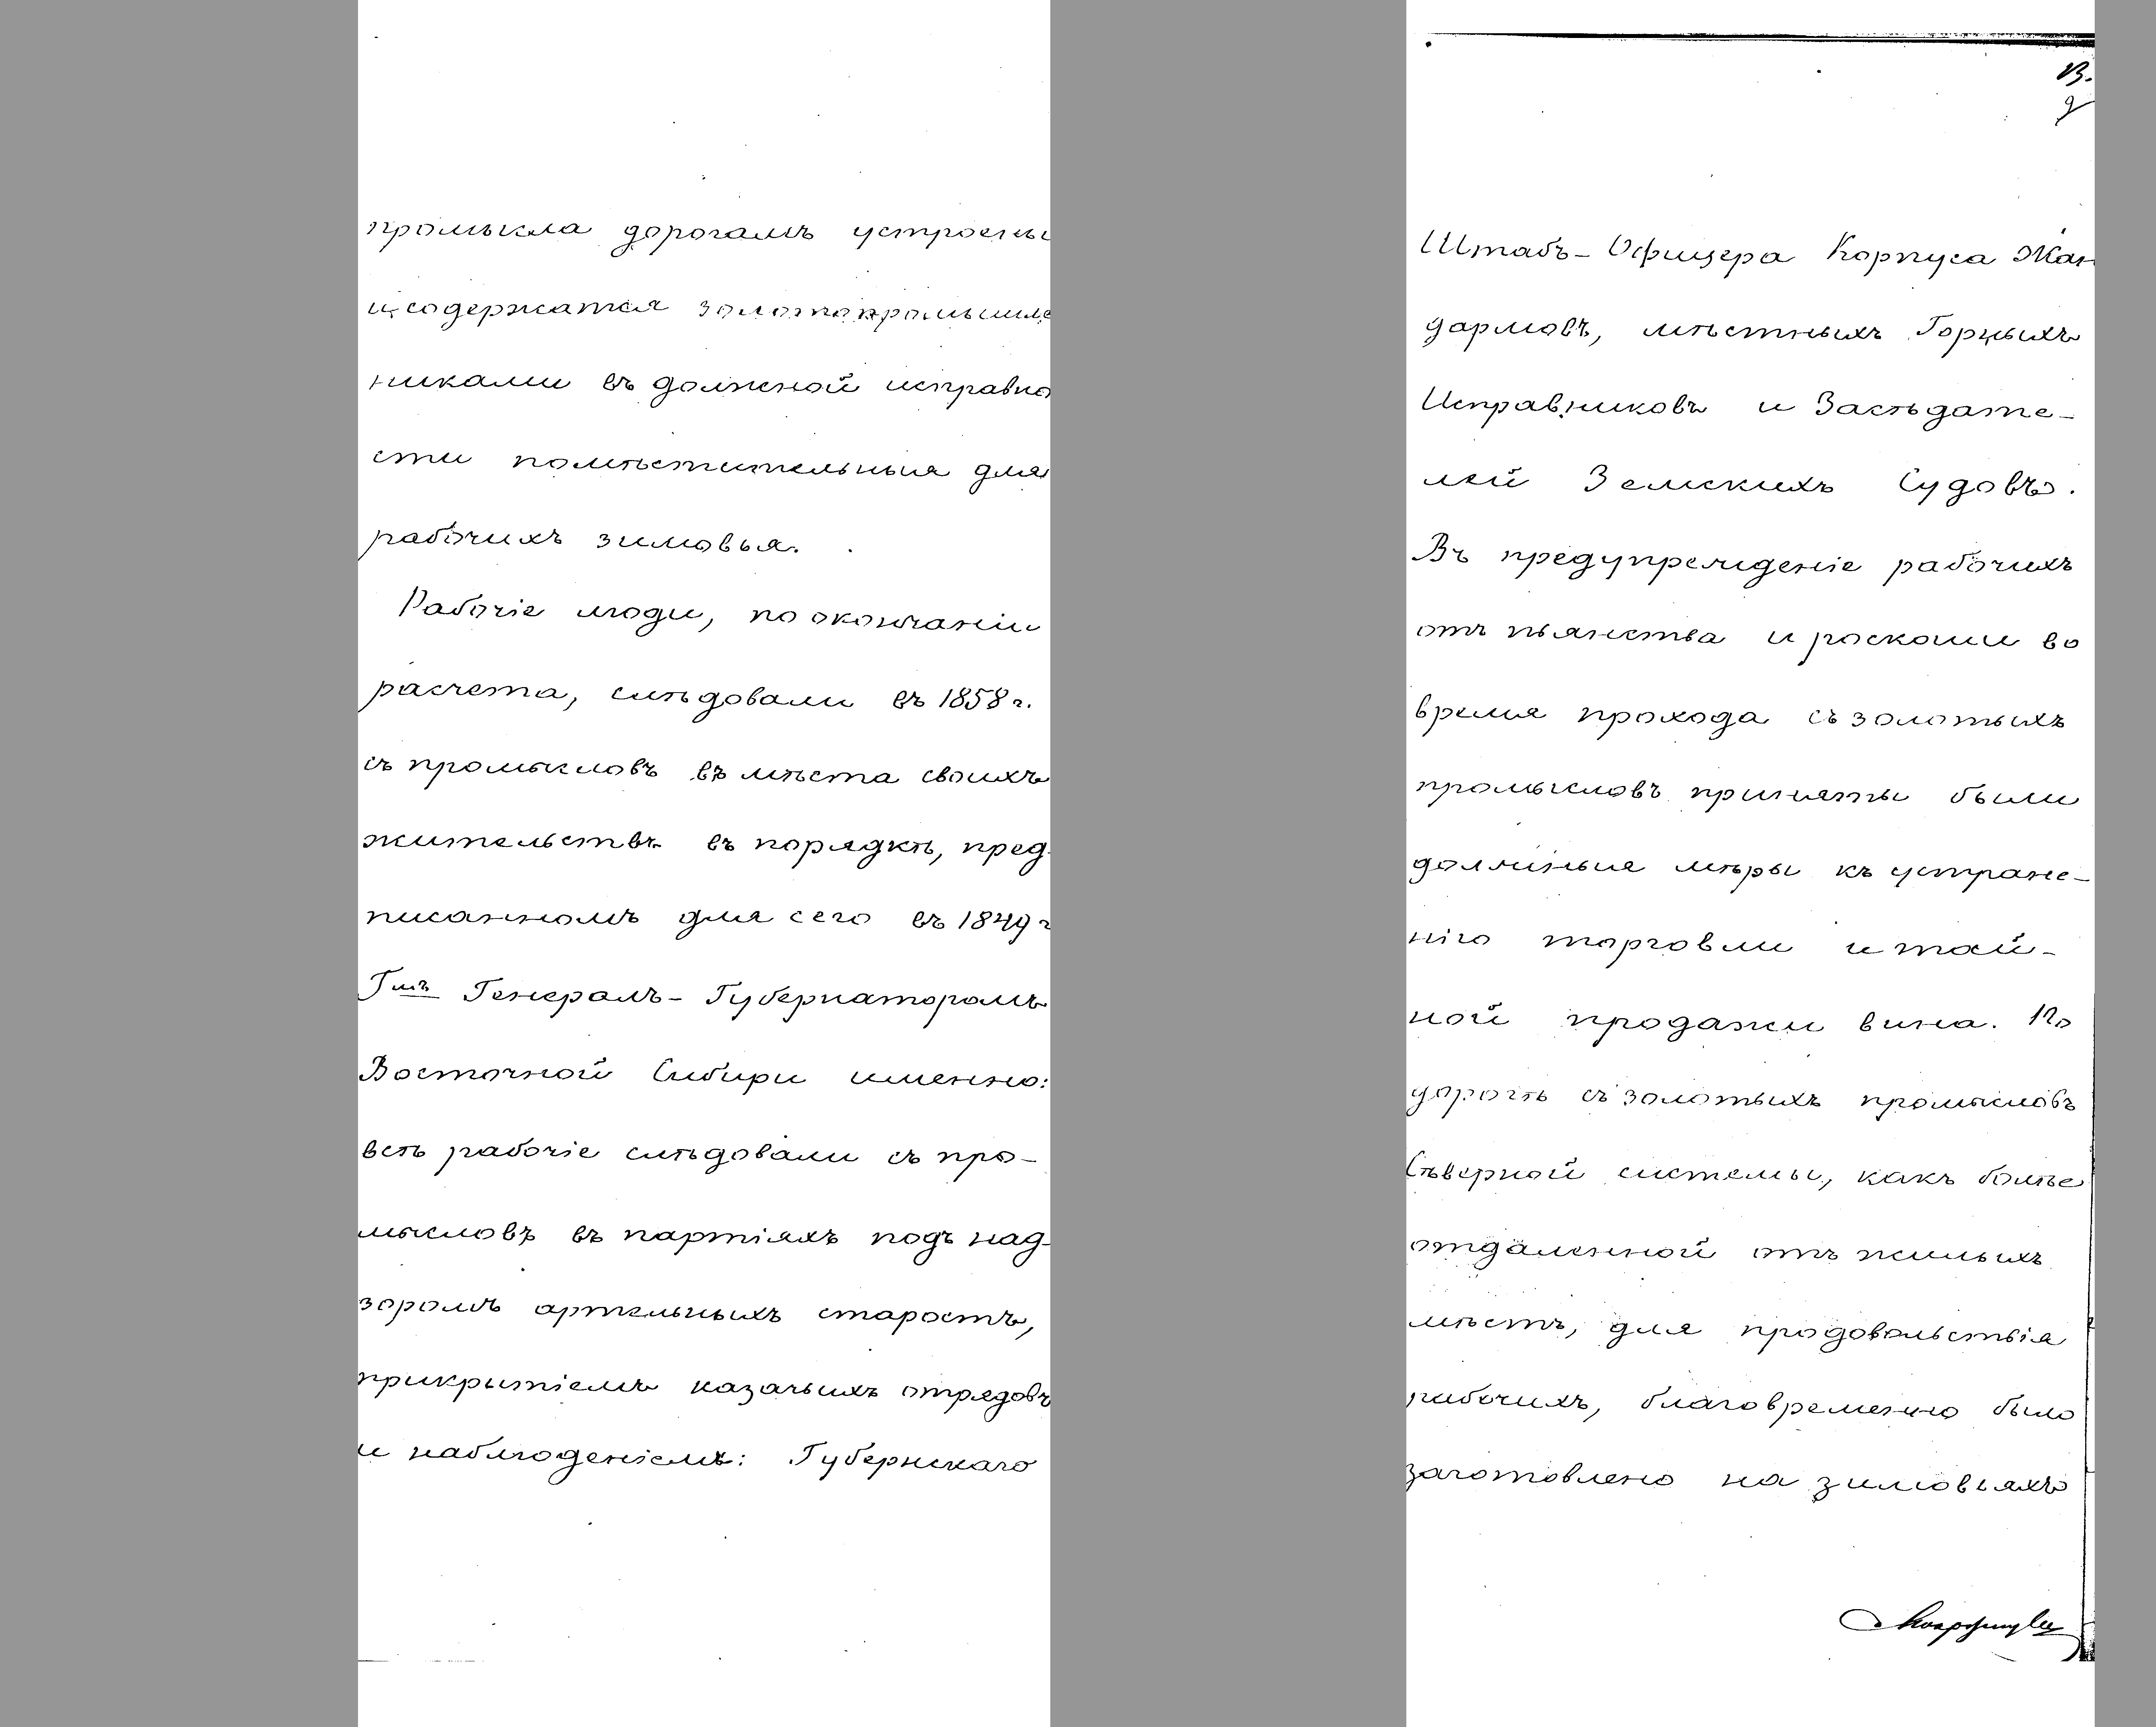 промысла дорогамъ устроены
и содержатся золотопромышле
никами въ должной исправно
сти помѣстительныя для
рабочихъ зимовья.
Рабочіе люди, по окончаніи
расчета, слѣдовали въ 1858 г.
съ промысловъ въ мѣста своихъ
жительствъ въ порядкѣ, пред
писанномъ для сего въ 1849 г
Гмъ Генералъ-Губернаторомъ
Восточной Сибири именно:
всѣ рабочіе слѣдовали съ про-
мысловъ въ партіяхъ подъ над-
зоромъ артельныхъ старостъ,
прикрытіемъ казачьихъ отрядовъ
и наблюденіемъ: Губернскаго
Штабъ-Офицера Корпуса Жан
дармовъ, мѣстныхъ Горныхъ
Исправниковъ и Засѣдате-
лей Земскихъ Судовъ.
Въ предупрежденіе рабочихъ
отъ пьянства и роскоши во
время прохода съ золотыхъ
промысловъ приняты были
должныя мѣры къ устране-
нію торговли и тай-
ной продажи вина. По
дорогѣ съ золотыхъ промысловъ
Сѣверной системы, какъ болѣе
отдаленной отъ жилыхъ
мѣстъ, для продовольствія
рабочихъ, благовременно было
заготовлено на зимовьяхъ